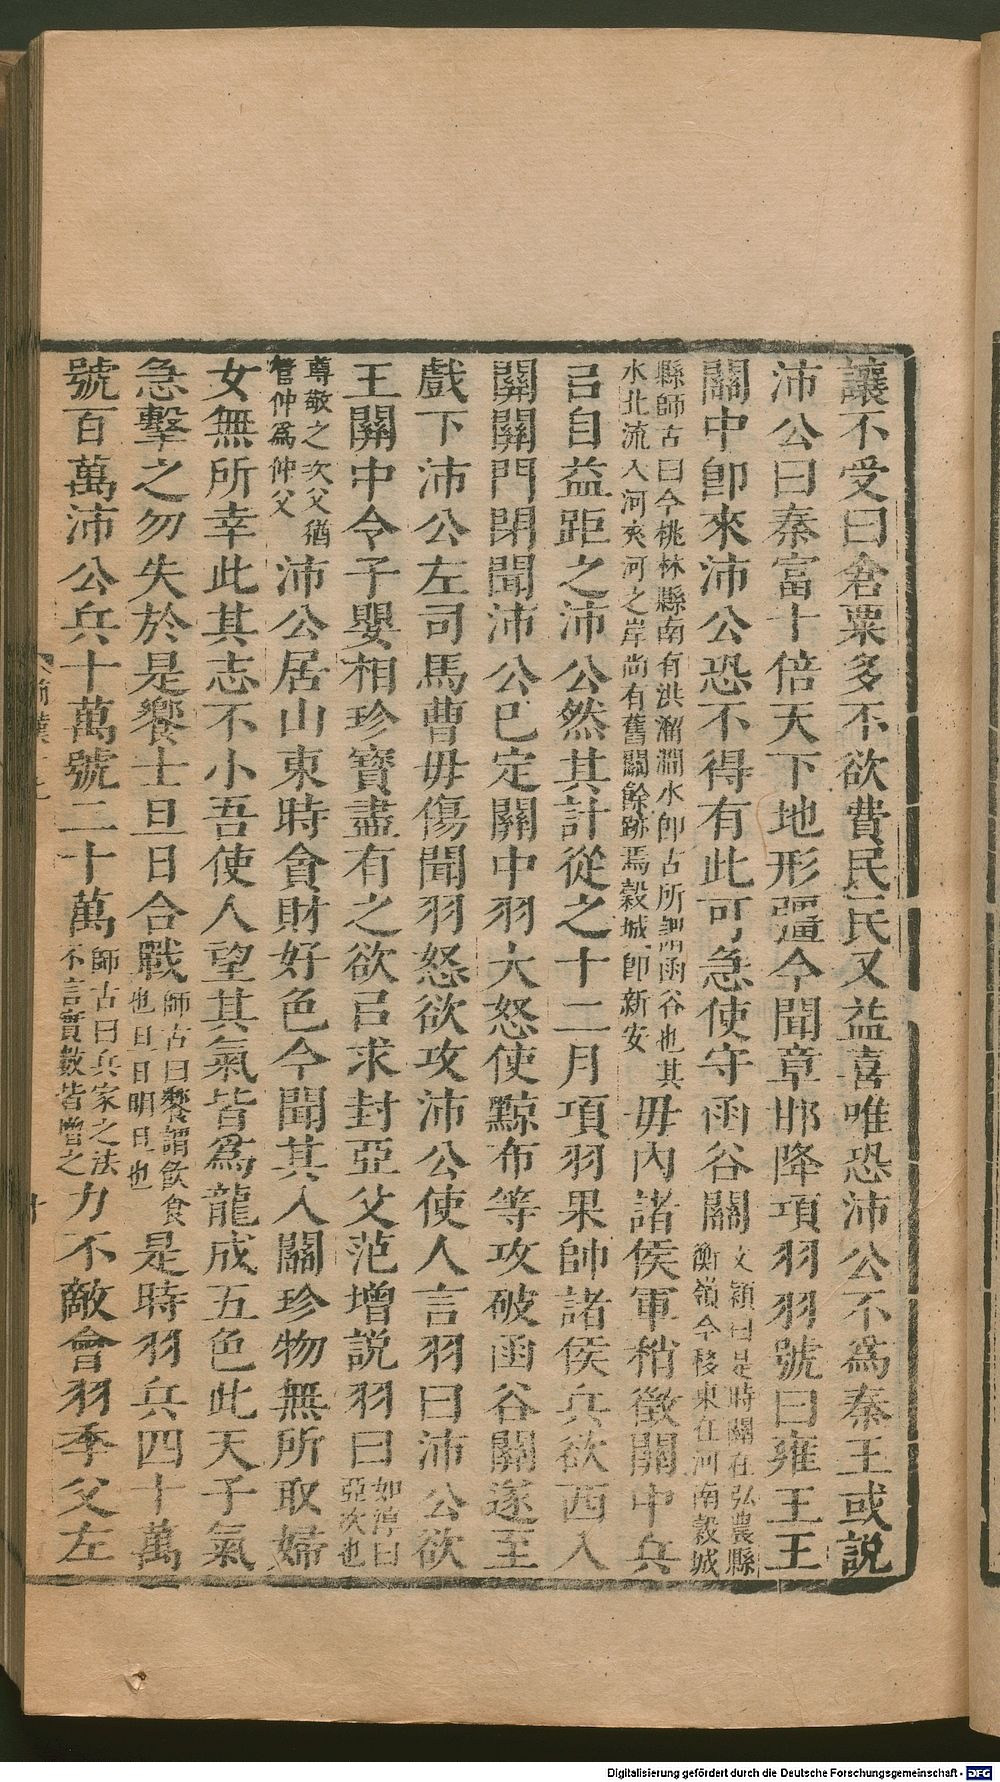 讓不受曰倉粟多不欲費民民又益喜唯恐沛公不爲秦王或説
沛公曰秦富十倍天下地形彊今聞章邯降項羽羽號曰雍王王
關中卽來沛公恐不得有此可急使守函谷關文穎曰是時關在弘農縣衡嶺今移東在河南穀城
縣師古曰今桃林縣南有洪溜澗水卽古所謂函谷也其水北流入河夾河之岸尚有舊關餘跡焉穀城卽新安毋內諸侯軍稍徵關中兵
㠯自益距之沛公然其計從之十二月項羽果帥諸侯兵欲西入
關關門閉聞沛公已定關中羽大怒使黥布等攻破函谷關遂至
戲下沛公左司馬曹毋傷聞羽怒欲攻沛公使人言羽曰沛公欲
王關中令子嬰相珍寶盡有之欲㠯求封亞父范增説羽曰如淳曰亞次也
尊敬之次父猶管仲爲仲父沛公居山東時貪財好色今聞其入關珍物無所取婦
女無所幸此其志不小吾使人望其氣皆爲龍成五色此天子氣
急擊之勿失於是饗士旦日合戰師古曰饗謂飲食也旦日明旦也是時羽兵四十萬
號百萬沛公兵十萬號二十萬師古曰兵家之法不言實數皆增之力不敵會羽季父左
前漢
Digitalisierung gefördert durch die Deutsche Forschungsgemeinschaft - DFG